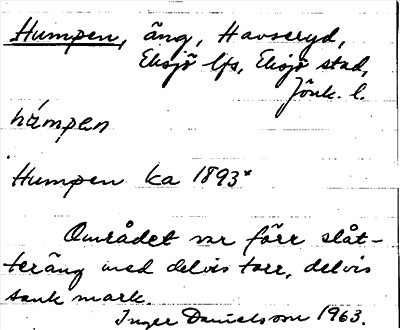 Humpen, äng, Havseryd,
Eksjö lfs, Eksjö stad,
Jönk. l.
húmpen
Humpen ka 1893*
Området var förr slåt-
teräng med delvis torr, delvis
sank mark.
Inger Danielsson 1963.